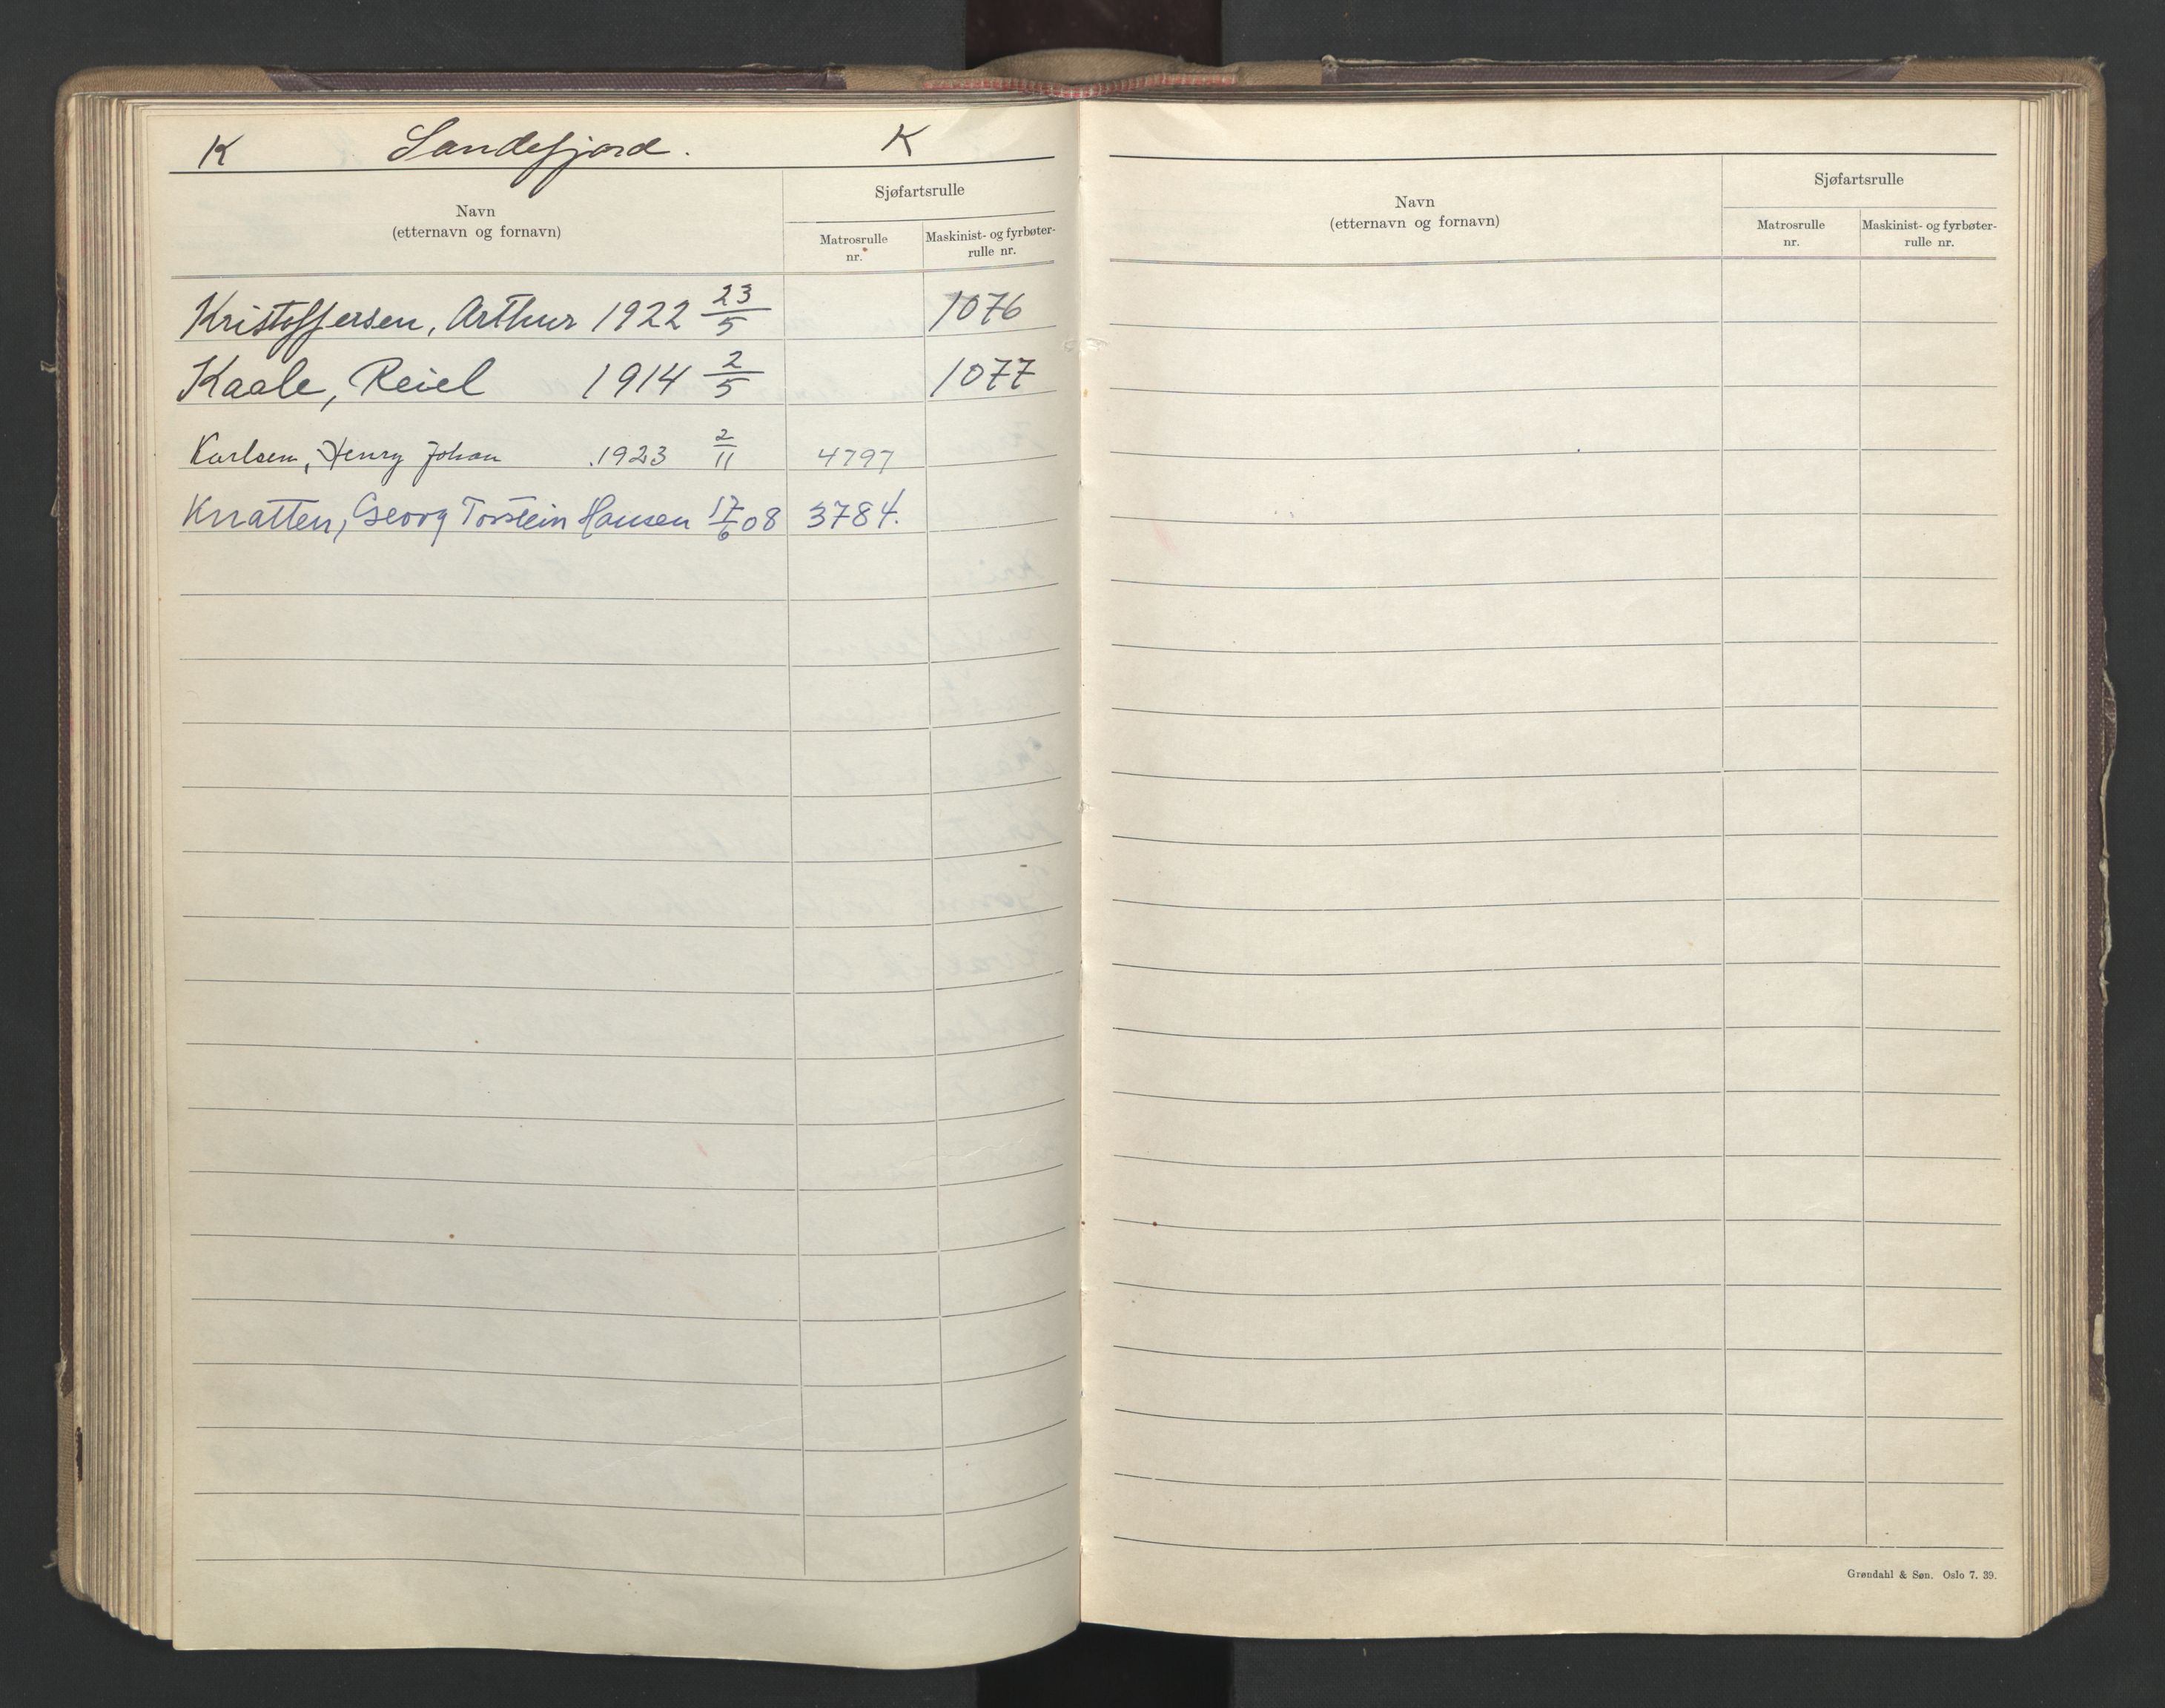 K Sandefjord. K
Navn
(etternavn og fornavn)
Sjøfartsrulle
Matrosrulle
nr.
Maskinist- og fyrbøter-
rulle nr.
Kristoffersen, Arthur 1922 23/5 1076
Kaale, Reiel 1914 2/5 1077
Karlsen, Henry Johan .1923 2/11 4797
Knatten, Georg Torstein Hansen 17/6 08 3784.
Navn
(etternavn og fornavn)
Sjøfartsrulle
Matrosrulle
nr.
Maskinist- og fyrbøter-
rulle nr.
Grøndahl & Søn. Oslo 7. 39.